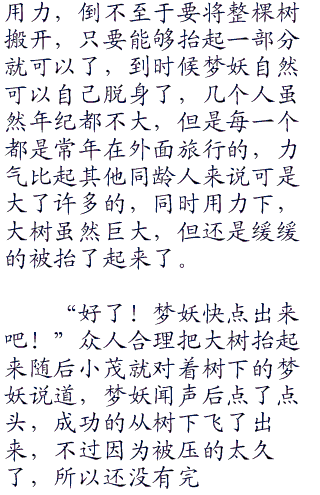 用力，倒不至于要将整棵树
搬开，只要能够抬起一部分
就可以了，到时候梦妖自然
可以自己脱身了，几个人虽
然年纪都不大，但是每一个
都是常年在外面旅行的，力
气比起其他同龄人来说可是
大了许多的，同时用力下，
大树虽然巨大，但还是缓缓
的被抬了起来了。
“好了！梦妖快点出来
吧！”众人合理把大树抬起
来随后小茂就对着树下的梦
妖说道，梦妖闻声后点了点
头，成功的从树下飞了出
来，不过因为被压的太久
了，所以还没有完